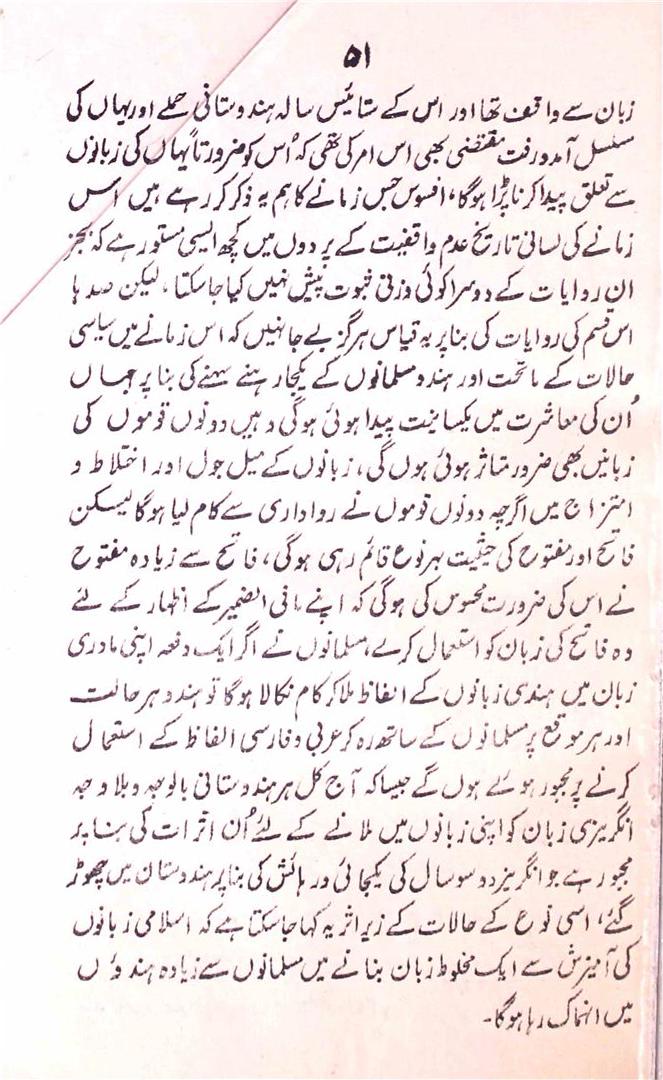 ۵۱
زبان سے واقف تھا اور اس کے ستائیس سالہ ہندوستانی حملے اور یہاں کی
مسلسل آمد و رفت مقتضی بھی اس امر کی تھی کہ اُس کو ضرورتاً یہاں کی زبانوں
سے تعلق پیدا کرنا پڑا ہوگا، افسوس جس زمانے کا ہم یہ ذکر کر رہے ہیں اس
زمانے کی لسانی تاریخ عدم واقفیت کے پردوں میں کچھ ایسی مستور ہے کہ بجز
ان روایات کے دوسرا کوئی وزنی ثبوت پیش نہیں کیا جا سکتا، لیکن صدہا
اس قسم کی روایات کی بنا پر یہ قیاس ہرگز بے جا نہیں کہ اس زمانے میں سیاسی
حالات کے ماتحت اور ہندو مسلمانوں کے یکجا رہنے سہنے کی بنا پر جہاں
اُن کی معاشرت میں یکسانیت پیدا ہوئی ہوگی وہیں دونوں قوموں کی
زبانیں بھی ضرور متاثر ہوئی ہوں گی، زبانوں کے میل جول اور اختلاط و
امتزاج میں اگرچہ دونوں قوموں نے رواداری سے کام لیا ہوگا لیکن
فاتح اور مفتوح کی حیثیت بہر نوع قائم رہی ہوگی، فاتح سے زیادہ مفتوح
نے اس کی ضرورت محسوس کی ہوگی کہ اپنے مافی الضمیر کے اظہار کے لئے
وہ فاتح کی زبان کو استعمال کرے، مسلمانوں نے اگر ایک دفعہ اپنی مادری
زبان میں ہندی زبانوں کے الفاظ ملا کر کام نکالا ہوگا تو ہندو ہر حالت
اور ہر موقع پر مسلمانوں کے ساتھ رہ کر عربی و فارسی الفاظ کے استعمال
کرنے پر مجبور ہوئے ہوں گے جیسا کہ آج کل ہر ہندوستانی بالوجہ و بلا وجہ
انگریزی زبان کو اپنی زبانوں میں ملانے کے لئے اُن اثرات کی بنا پر
مجبور ہے جو انگریز دو سو سال کی یکجائی و رہائش کی بنا پر ہندوستان میں چھوڑ
گئے، اسی نوع کے حالات کے زیر اثر یہ کہا جا سکتا ہے کہ اسلامی زبانوں
کی آمیزش سے ایک مخلوط زبان بنانے میں مسلمانوں سے زیادہ ہندوؤں
میں انہماک رہا ہوگا۔